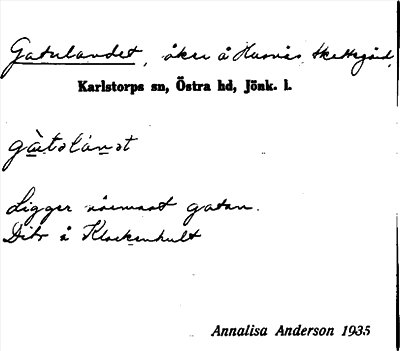 Gatulandet, åker å Husnäs Skattegård,
Karlstorps sn, Östra hd, Jönk. l.
gàtɷlánːdt
Ligger närmast gatan.
Dito å Klackenhult
Annalisa Anderson 1935